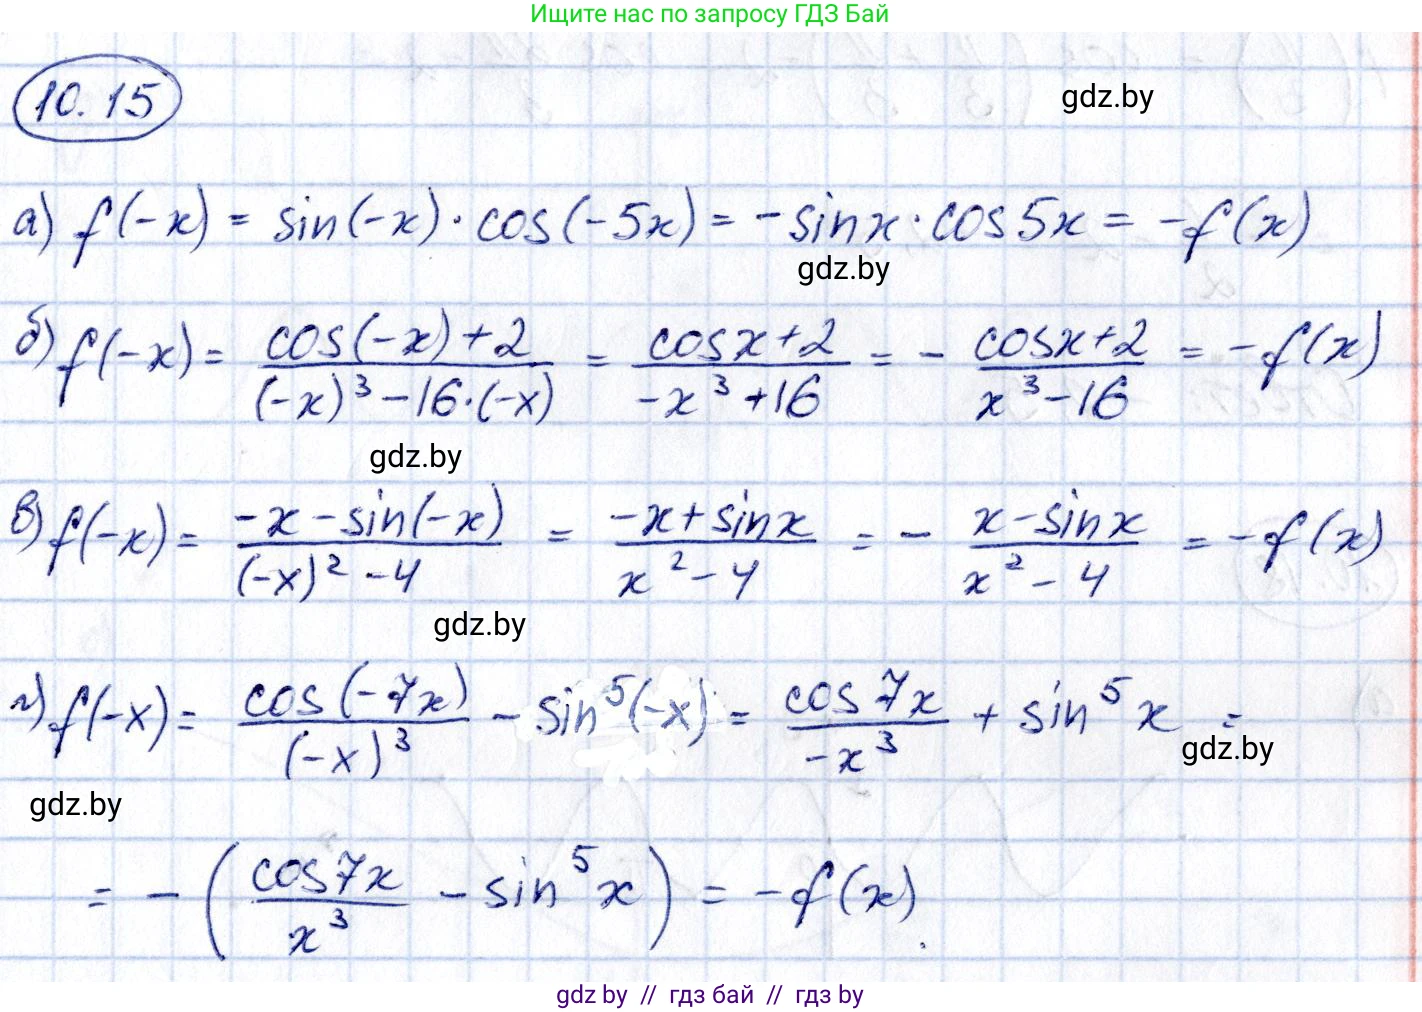 Ищите нас по запросу ГДЗ Бай
10.15
gdz.by
а) f(-x) = sin(-x) · cos(-5x) = -sinx · cos5x = -f(x)
gdz.by
б) f(-x) = (cos(-x)+2)/((-x)³-16·(-x)) = (cosx+2)/(-x³+16) = - (cosx+2)/(x³-16) = -f(x)
gdz.by
в) f(-x) = (-x-sin(-x))/((-x)²-4) = (-x+sinx)/(x²-4) = - (x-sinx)/(x²-4) = -f(x)
gdz.by
г) f(-x) = cos(-7x)/(-x)³ - sin⁵(-x) = cos7x/-x³ + sin⁵x =
gdz.by
gdz.by
= -(cos7x/x³ - sin⁵x) = -f(x).
gdz by // гдз бай // гдз by